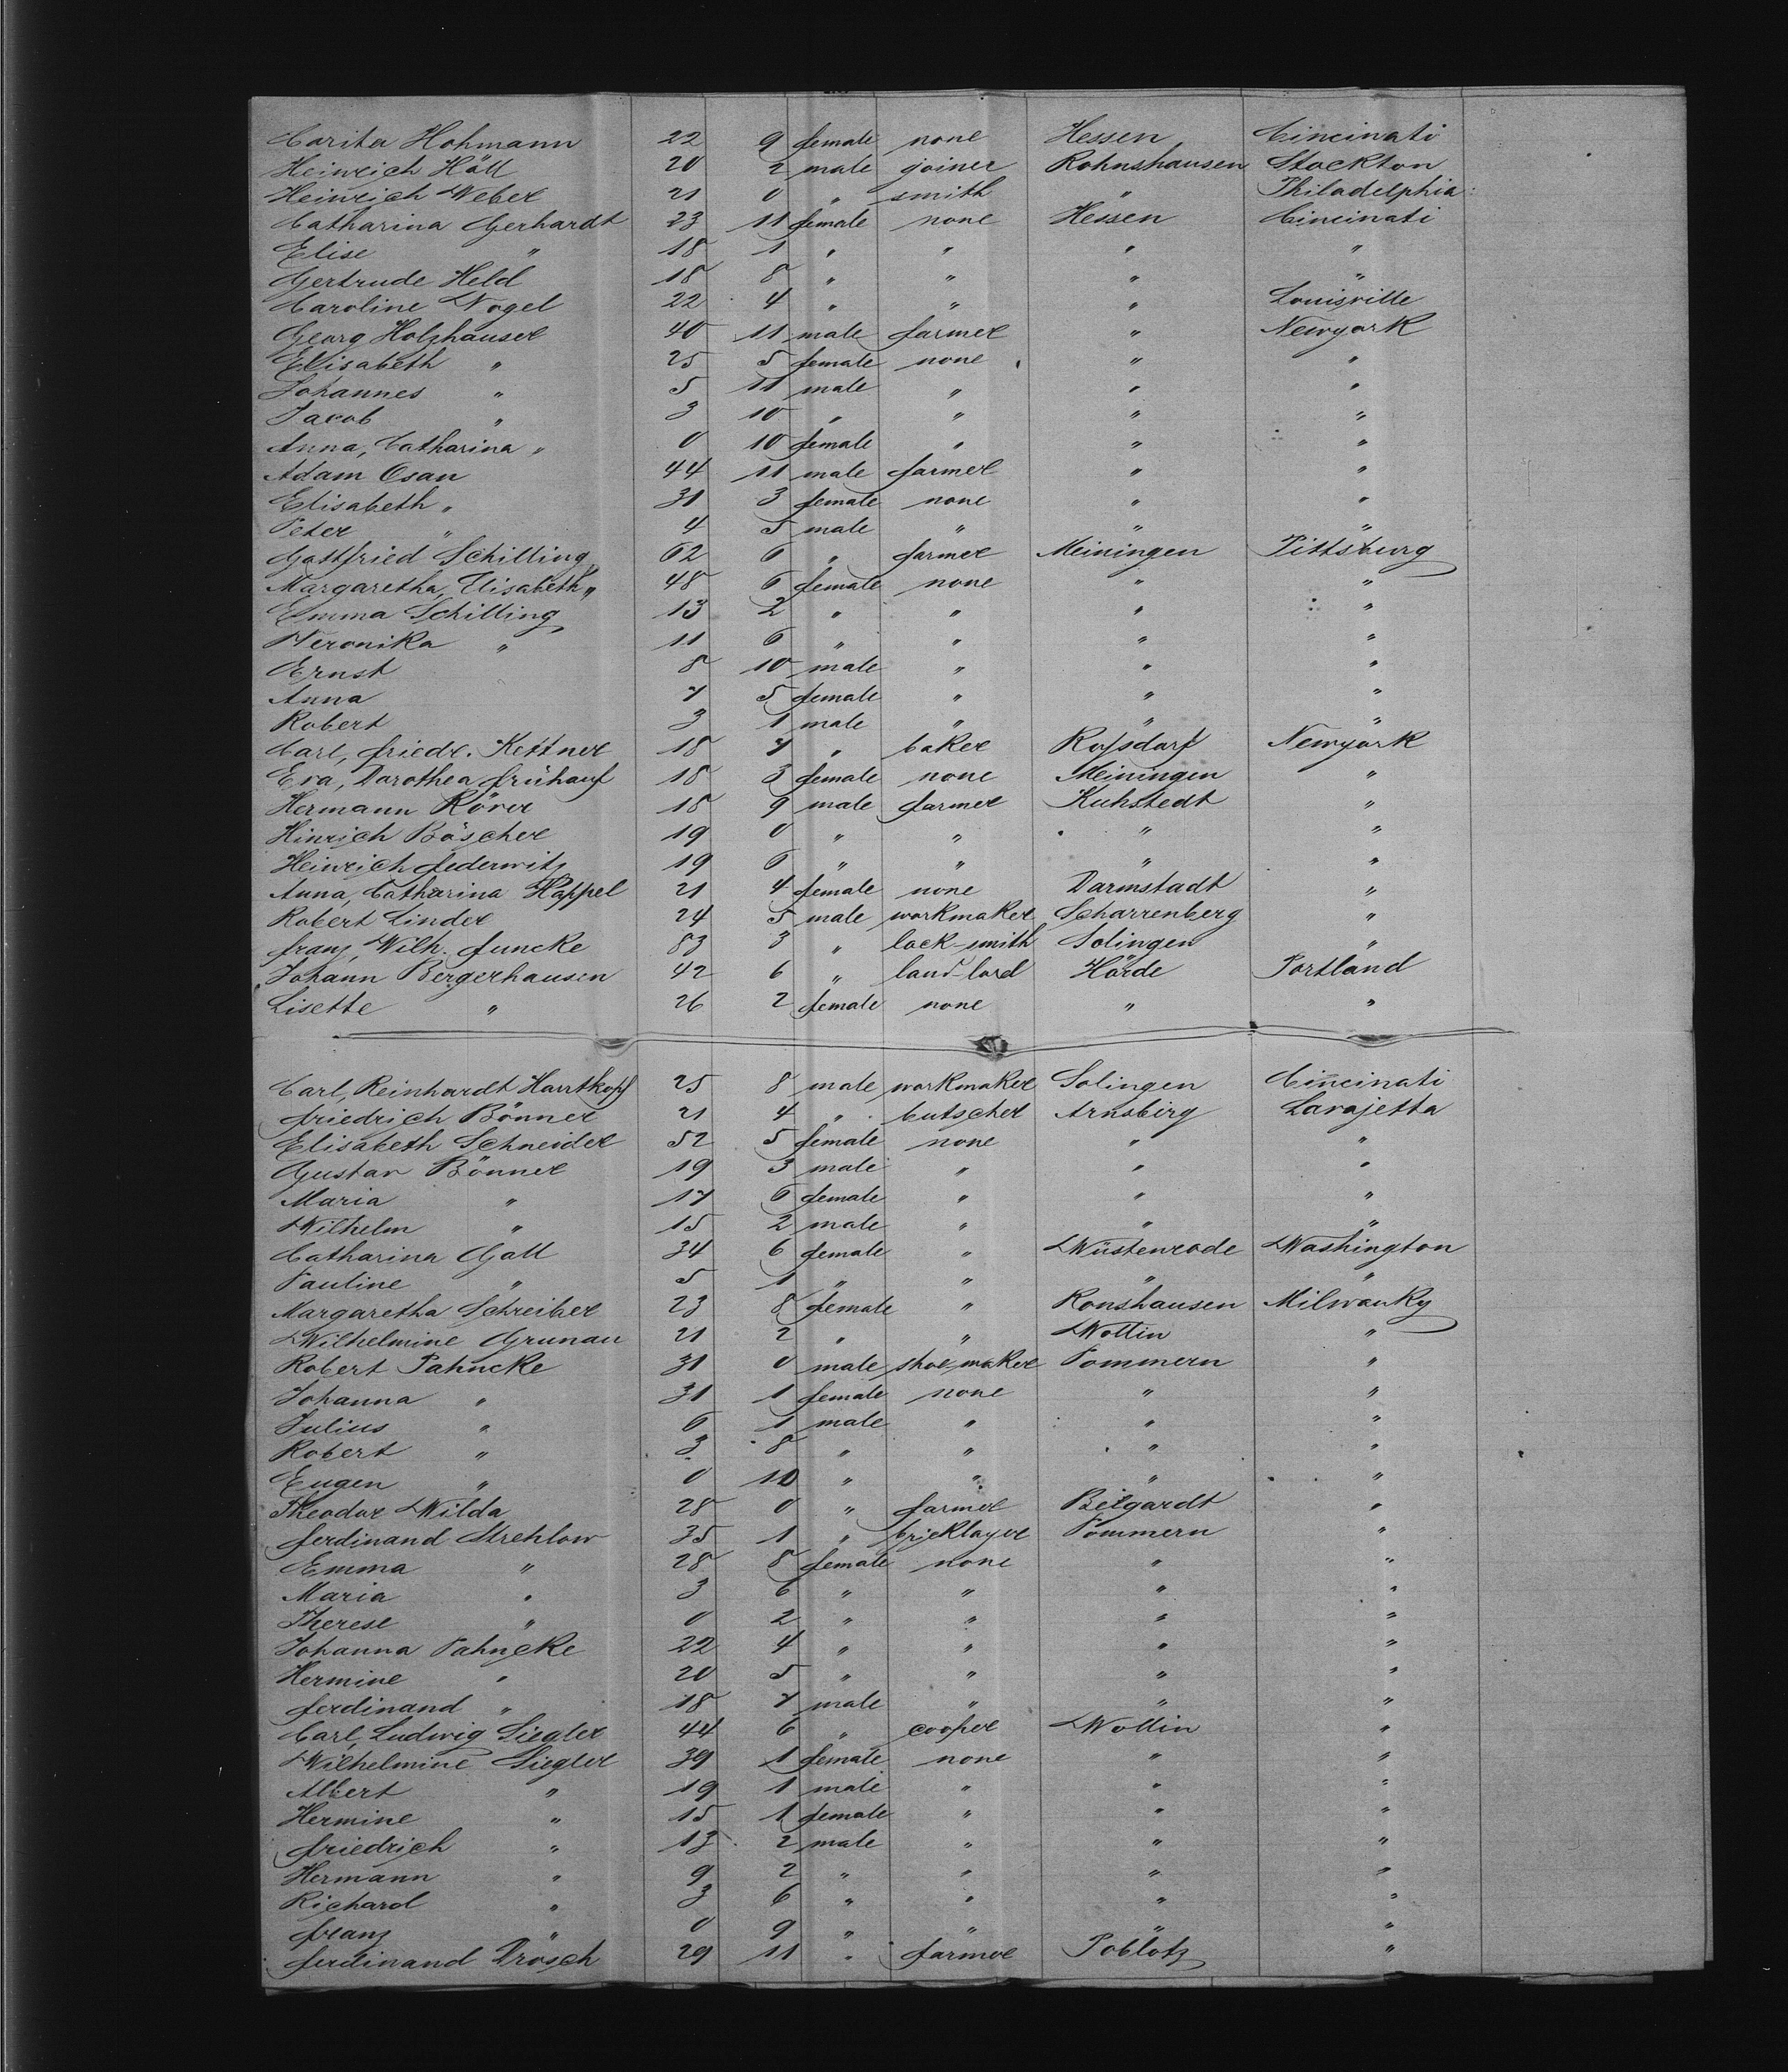 Carita Hohmann 22 9 female none Hessen Cincinati
Heinrich Höll 20 2 male joiner Rohnshausen Stockton
Heinrich Weber 21 0 " smith " Philadelphia
Catharina Gerhardt 23 11 female none Hessen Cincinati
Elise " 18 1 " " " "
Gertrude Held 18 8 " " " "
Caroline Vogel 22 4 " " " Louisville
Georg Holzhauser 40 11 male farmer " Newyork
Elisabeth " 25 5 female none " "
Johannes " 5 11 male " " "
Jacob " 3 10 " " " "
Anna, Catharina " 0 10 female " " "
Adam Osan 44 11 male farmer " "
Elisabeth " 31 3 female none " "
Peter " 4 5 male " " "
Gottfried Schilling 62 6 " farmer Meiningen Pittsburg
Margaretha, Elisabeth " 48 6 female none " "
Emma Schilling 13 2 " " " "
Veronika " 11 6 " " " "
Ernst 8 10 male " " "
Anna 7 5 female " " "
Robert 3 1 male " " "
Carl, Friedr. Kettner 18 7 " baker Rossdorf Newyork
Eva, Dorothea Frühauf 18 3 female none Meiningen "
Hermann Röver 18 9 male farmer Kuhstedt "
Hinrich Böscher 19 0 " " " "
Heinrich Federwitz 19 6 " " " "
Anna, Catharina Happel 21 4 female none Darmstadt "
Robert Linder 24 5 male workmaker Scharrenberg "
Franz, Wilh. Funcke 83 3 " lock-smith Solingen "
Johann Bergerhausen 42 6 " land-lord Hörde Portland
Lisette " 26 2 female none " "
Carl, Reinhardt Harrtkopf 25 8 male workmaker Solingen Cincinati
Friedrich Bönner 21 4 " butscher Arnsberg Lavajetta
Elisabeth Schneider 52 5 female none " "
Gustav Bönner 19 3 male " " "
Maria " 17 6 female " " "
Wilhelm " 15 2 male " " "
Catharina Gall 34 6 female " Wüstenrode Washington
Pauline " 5 1 " " " "
Margaretha Schreiber 23 8 female " Ronshausen Milwauky
Wilhelmine Grunau 21 2 " " Wollin "
Robert Pahncke 31 0 male shoe maker Pommern "
Johanna " 31 1 female none " "
Julius " 6 1 male " " "
Robert " 3 8 " " " "
Eugen " 0 10 " " " "
Theodor Wilda 28 0 " farmer Belgardt "
Ferdinand Strehlow 35 1 " bricklayer Pommern "
Emma " 28 8 female none " "
Maria " 3 6 " " " "
Therese " 0 2 " " " "
Johanna Pahncke 22 4 " " " "
Hermine " 20 5 " " " "
Ferdinand " 18 7 male " " "
Carl, Ludwig Siegler 44 6 " cooper Wollin "
Wilhelmine Siegler 39 1 female none " "
Albert " 19 1 male " " "
Hermine " 15 1 female " " "
Friedrich " 13 2 male " " "
Hermann " 9 2 " " " "
Richard " 3 6 " " " "
Franz " 0 9 " " " "
Ferdinand Drosch 29 11 " farmer Poblotz "